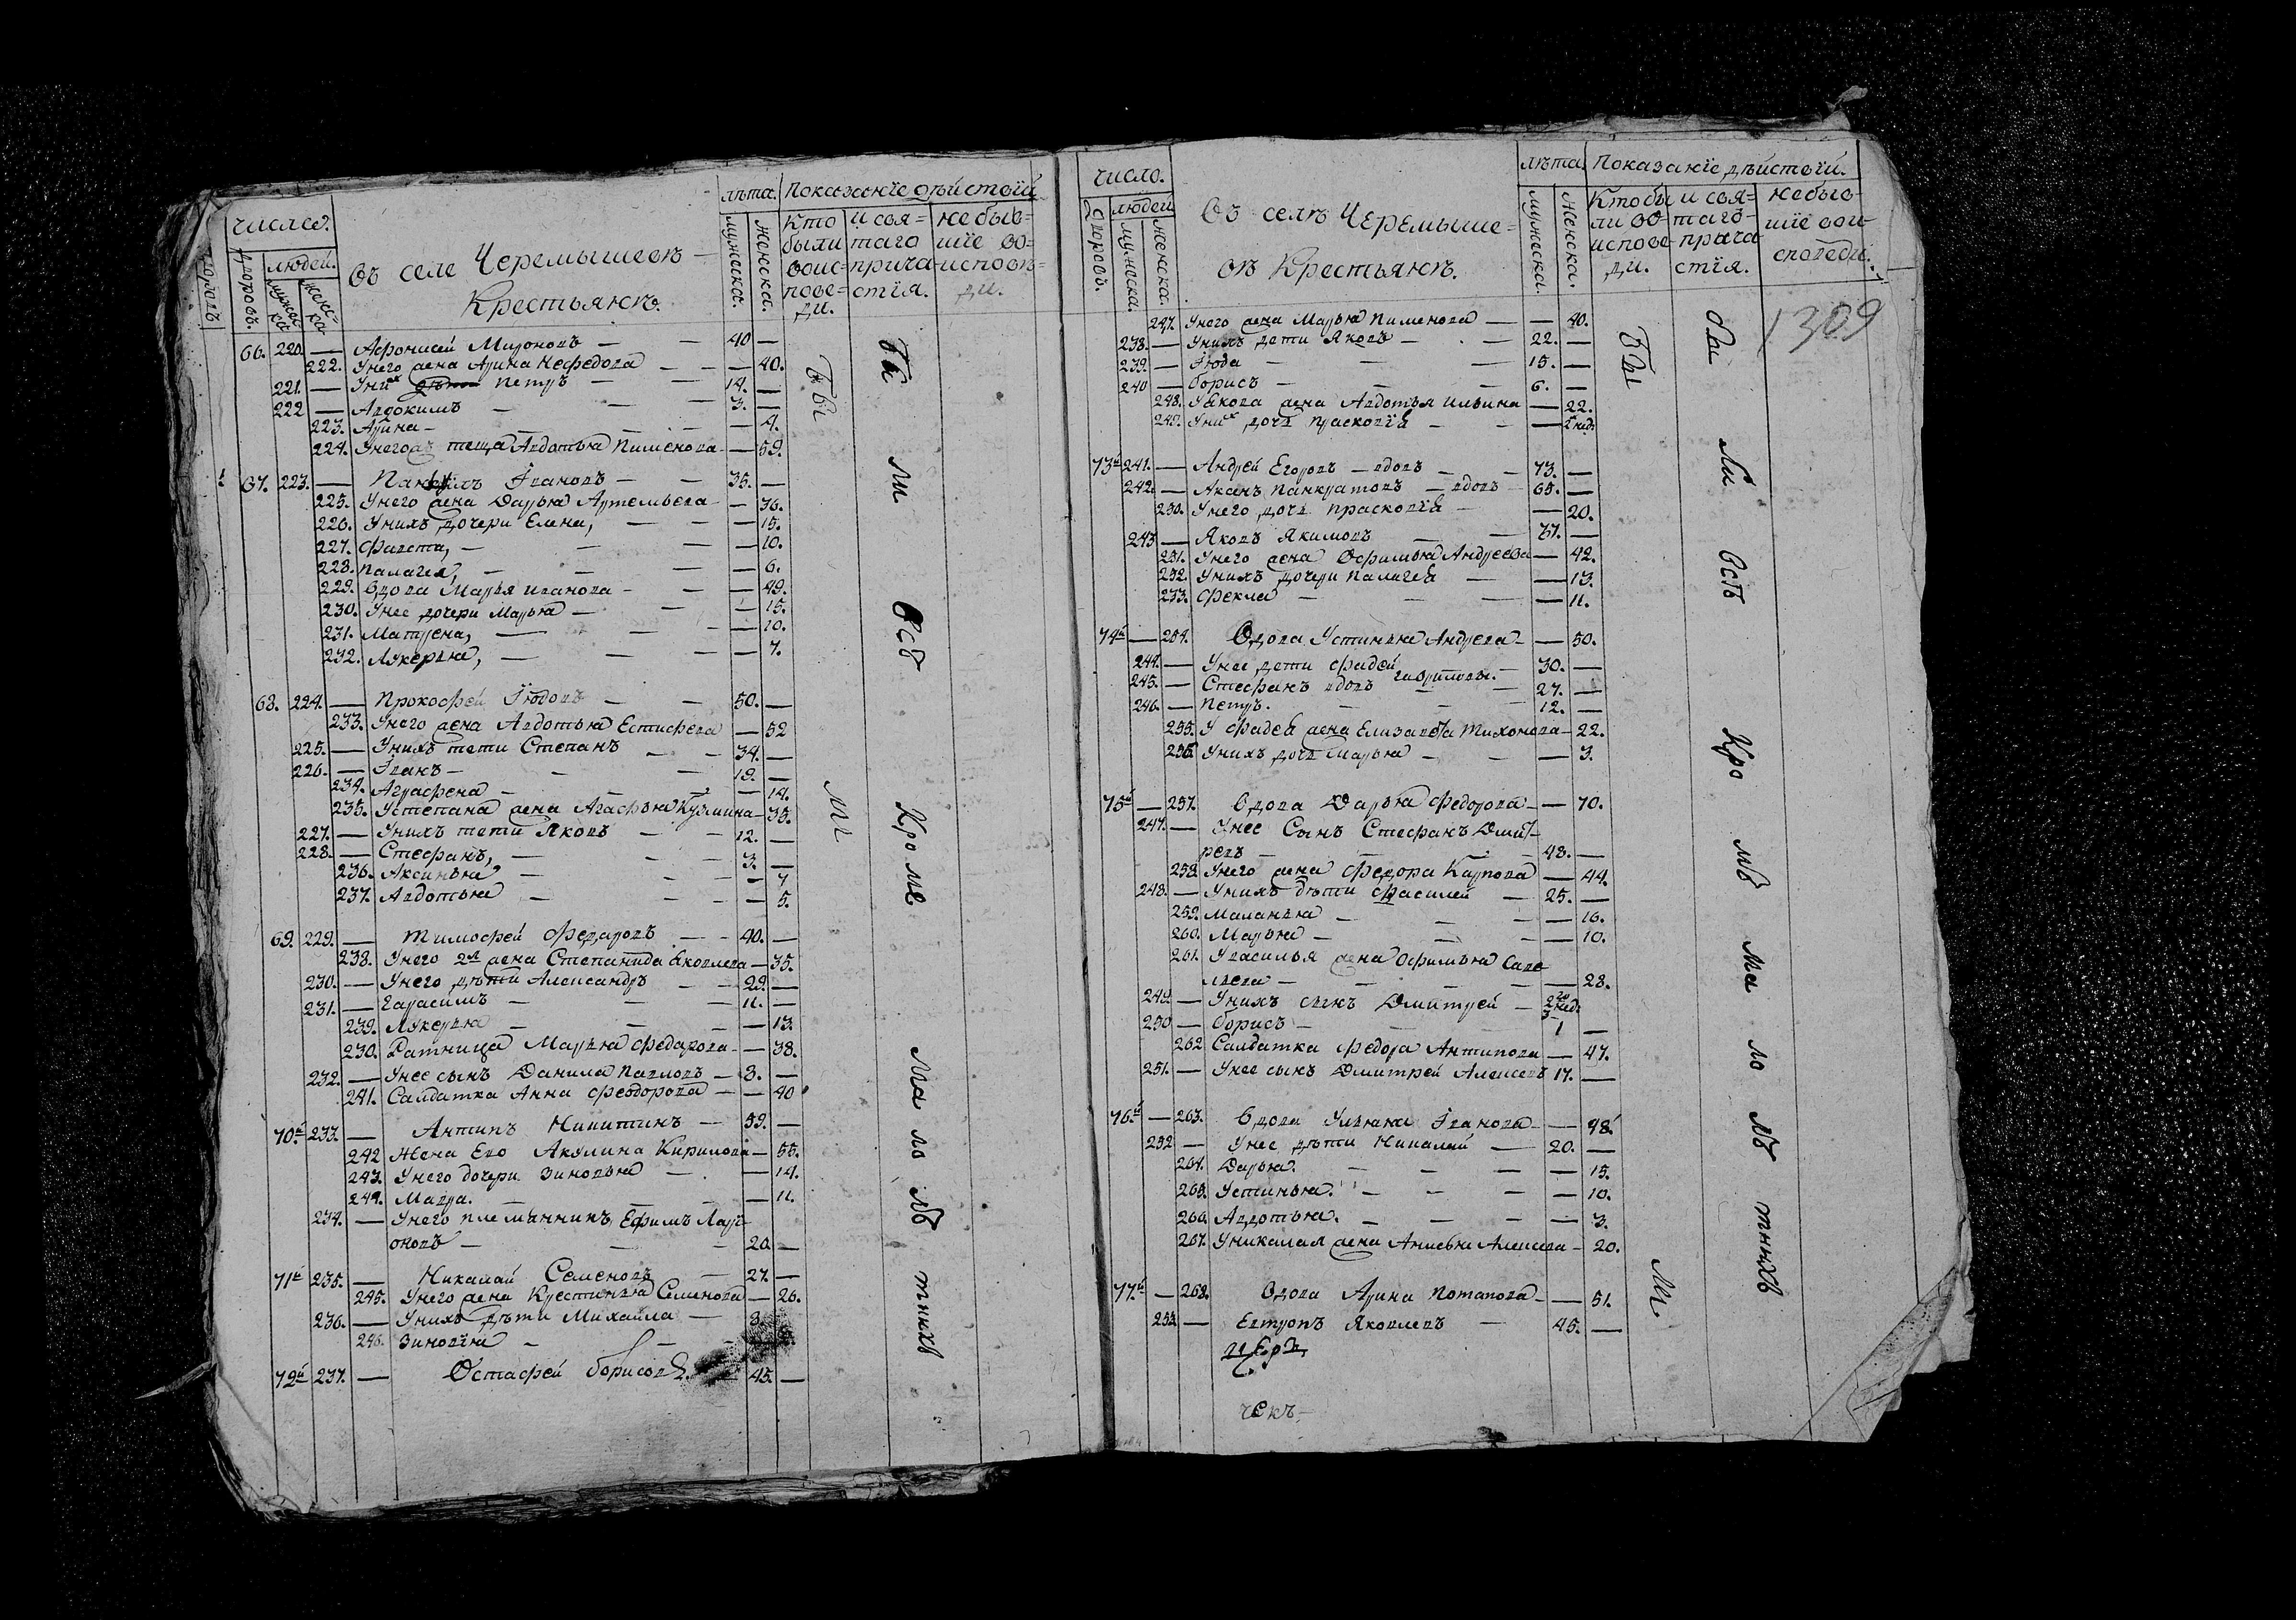 число.
людей.
дворовъ.
мужеска
женска
Въ селе Черемышевѣ
Крестьянѣ.
лѣта.
мужеска.
женска.
Показанїе дѣйствїй
Кто были во исповеди.
и святаго причастїя.
не бывшїе во исповѣди.
66. 220. — Афонисей Мироновъ — — 40 —
222. Унего жена Арина Нефедова — — 40.
221. — Уних Петръ — — 14. —
222 — Авдокимъ — — 3. —
223. Арина — — — 4.
224. Унегожъ теща Авдотья Пименова — 59.
67. 223. — Ивановъ — — 35. —
225. Унего жена Дарья Артемьева — 36.
226. Унихъ дочери Елена, — — 15.
227. Фавста, — — — 10.
228. Палагея, — — — 6.
229. Вдова Марья Иванова — — 49.
230. Унее дочери Марья — — 15.
231. Матрена, — — — 10.
232. Лукерья, — — — 7.
68. 224. — Прокофей Июдовъ — — 50. —
233. Унего жена Авдотья Естифева — 52
225. — Унихъ тети Степанъ — — 34. —
226. — Иванъ — — 19. —
234. Аграфена — — — 14.
235. Устепана жена Агафья Кузмина — 35.
227. — Унихъ тети Яковъ — — 12. —
228. — Стефанъ, — — 3. —
236. Аксинья — — — 7
237. Авдотья — — — 5.
69. 229. — Тимофей Федаровъ — — 40. —
238. Унего 2я жена Степанида Яковлева — 35.
230. — Унего дѣти Александръ — — 22. —
231. — Гарасимъ — — 11. —
239. Лукерья — — — 13.
230. Ратница Марья Федарова — — 38.
232. — Унее сынъ Данила Павловъ — 8. —
241. Салдатка Анна Феодорова — — 40
70й 233. — Антипъ Никитинъ — 59. —
242 Жена Ево Акулина Кирилова — 55.
243. Унего дочери Зиновья — — 14.
244. Мавра. — — — 11.
234. — Унего племянникъ Ефимъ Лари-
оновъ — — — 20. —
71й 235. — Никалай Семеновъ — 27. —
245. Унего жена Крестинья Семенова — 26.
236. — Унихъ дѣти Михайла — 3. —
246. Зиновїя —
72й 237. — Остафей Борисовъ. — 45. —
Бы ли
Бы ли Всѣ Кромѣ малолѣтнихъ
число.
дворовъ.
людей
мужеска.
женска.
Въ селѣ Черемыше-
вѣ Крестьянѣ.
лѣта.
мужеска.
женска.
Показанїе дѣйствїй.
Кто были во исповеди.
и святаго причастїя.
небывшїе воисповеди.
1309
247. Унего жена Марья Пименова — — 40.
238. — Унихъ дети Яковъ — — 22. —
239. — Июда — — 15. —
240 — Борисъ — — 6. —
248. Уякова жена Авдотья Ильина — 22.
249. Уних дочь Прасковїя — —
73й 241. — Андрей Егоровъ — вдовъ — — 73. —
242. — Аксенъ Панкратовъ — вдовъ — 65. —
250. Унего дочь Прасковїя — — 20.
243. — Яковъ Якимовъ — — 37. —
251. Унего жена Офимья Андреева — 42.
252. Унихъ дочери Палагея — — 13.
253. Фекла — — — 11.
74й — 254. Вдова Устинья Андрева — — 50.
244. — Унее дети Фадей — 30. —
Гавриловы.
245. — Стефанъ вдовъ — 27. —
246. — Петръ. — — 12. —
255. У Фадея жена Елизавета Тихонова — 22.
256 Унихъ дочь Марья — — 3.
75й — 257. Вдова Дарья Федорова — — 70.
247. — Унее Сынъ Стефанъ Дмит-
ревъ — — — 48. —
258. Унего жена Федора Карпова — 44.
248. — Унихъ дѣти Василей — 25. —
259. Маланья — — — 16.
260. Марья — — — 10.
261. Увасилья жена Офимья Саве
льева — — — 28.
249. — Унихъ сынъ Дмитрей —
250 — Борисъ — 1 —
262 Салдатка Федора Антипова — 47.
251. — Унее сынъ Дмитрей Алексевъ 17. —
76й — 263. Вдова Ульяна Иванова — — 48.
252 — Унее дѣти Никалай — 20. —
264. Дарья. — — — 15.
265. Устинья. — — — 10.
266. Авдотья. — — — 3.
267. Уникалая жена Анисья Алексева — 20.
77й — 268. Вдова Арина Потапова — — 51.
253 — Евтропъ Яковлевъ — 45. —
Бы ли
бы ли Всѣ Кромѣ малолѣтнихъ